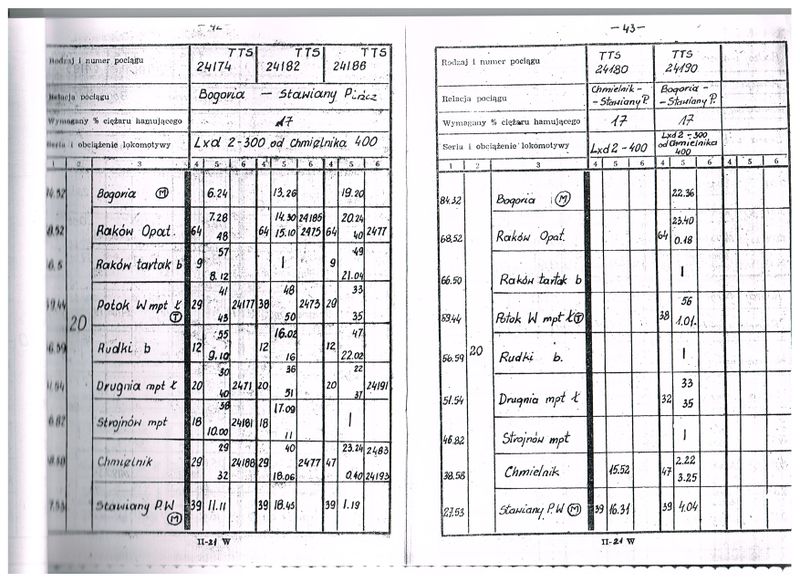 — 42
Rodzaj i numer pociągu TTS 24174 TTS 24182 TTS 24186
Relacja pociągu Bogoria — Stawiany P.
Wymagany % ciężaru hamującego 17
Seria i obciążenie lokomotywy Lxd 2-300 od Chmielnika 400
1 2 3 4 5 6 4 5 6 4 5 6
Bogoria M 6.24 13.26 19.20
7.28 14.30 24185 20.24
Raków Opat. 64 48 64 15.10 2475 64 40 2477
57 49
Raków tartak b 9 | 9
8.12 21.04
41 48 33
Potok W mpt Ł 29 24177 38 2473 29
T 43 50 35
20
55 16.02 47
Rudki b 12 12 12
9.10 16 22.02
30 36 22
Drugnia mpt Ł 20 2471 20 20 24191
40 51 37
58 17.09
Strojnów mpt 18 24181 18 |
10.00 11
29 40 23.24 2483
Chmielnik 29 24188 29 2477 47
32 18.06 0.40 24193
Stawiany P.W M 39 11.11 39 18.45 39 1.19
II-21 W
— 43 —
Rodzaj i numer pociągu TTS 24180 TTS 24190
Relacja pociągu Chmielnik - - Stawiany P. Bogoria - - Stawiany P.
Wymagany % ciężaru hamującego 17 17
Seria i obciążenie lokomotywy Lxd2-400 Lxd2-300 od Chmielnika 400
1 2 3 4 5 6 4 5 6 4 5 6 4 5 6
84.32 Bogoria M 22.36
23.40
68,52 Raków Opat. 64 0.18
66.50 Raków tartak b |
56
59.44 Potok W mpt Ł T 38 1.01.
20
56.59 Rudki b. |
33
51.54 Drugnia mpt Ł 32 35
46.82 Strojnów mpt |
2.22
38.58 Chmielnik 15.52 47
3.25
27.53 Stawiany P.W M 39 16.31 39 4.04
II-21 W